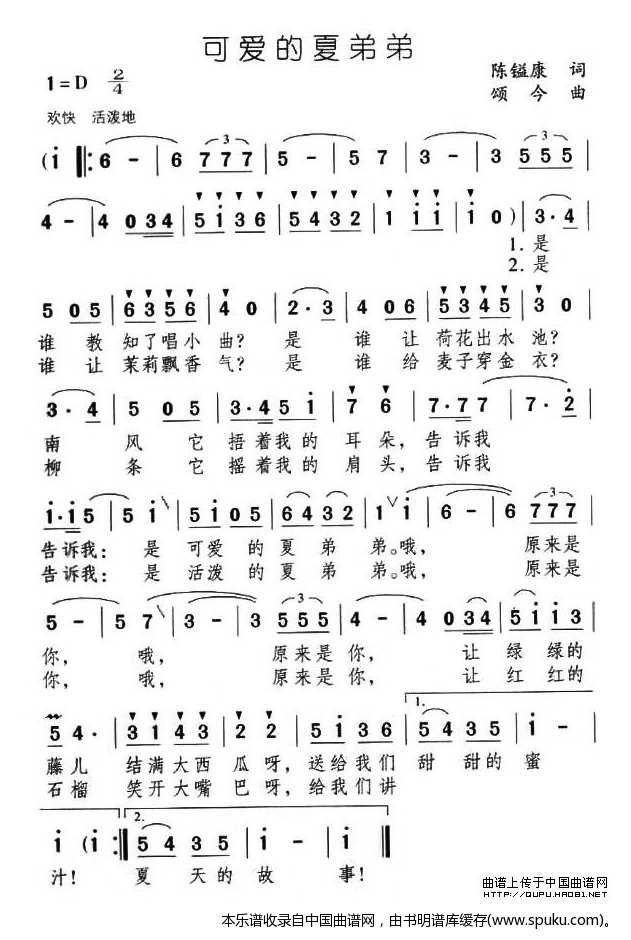 可爱的夏弟弟
1=D 2/4
陈镒康 词
颂今 曲
欢快 活泼地
(i ‖: 6 - | 6 777 | 5 - | 5 7 | 3 - | 3 555 |
4 - | 4 034 | 5i36 | 5432 | 1 i i | i 0 ) | 3·4 |
1.是
2.是
5 05 | 6356 | 4 0 | 2·3 | 4 06 | 5345 | 3 0 |
谁 教 知了唱小 曲？是 谁 让 荷花出水 池？
谁 让 茉莉飘香 气？是 谁 给 麦子穿金 衣？
3·4 | 5 05 | 3·45i | 7 6 | 7·77 | 7·2 |
南 风 它 捂着我的 耳朵，告诉我
柳 条 它 摇着我的 肩头，告诉我
i·i5 | 5 i | 5i05 | 6432 | 1 i | 6 - | 6 777 |
告诉我：是 可爱 的 夏 弟 弟。哦， 原来是
告诉我：是 活泼 的 夏 弟 弟。哦， 原来是
5 - | 5 7 | 3 - | 3 555 | 4 - | 4 034 | 5ii3 |
你， 哦， 原来是你， 让 绿 绿的
你， 哦， 原来是你， 让 红 红的
5 4· | 3143 | 2 2 | 5i36 | 1. 5435 | i - |
藤儿 结满大西 瓜呀，送给我们 甜 甜的 蜜
石榴 笑开大嘴 巴呀，给我们讲
i (i :‖ 2. 5435 | i - | i - ‖
汁！ 夏 天的故 事！
曲谱上传于中国曲谱网
http://QUPU.HAO81.NET
本乐谱收录自中国曲谱网，由书明谱库缓存(www.spuku.com)。